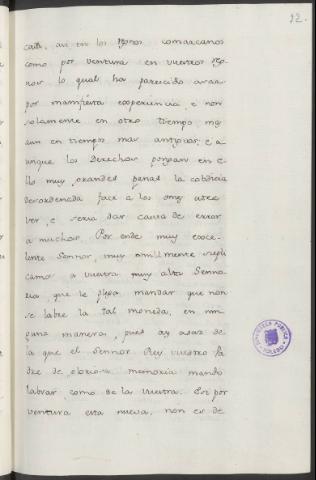 12.
casa, asi en los Reynos comarcanos
como por ventura en vuestros Rey
nos lo qual ha parecido assaz
por manifiesta experiencia, e non
solamente en otro tiempo mas
aun en tiempos mas antiguos, e a
unque los derechos pongan en e-
llo muy grandes penas la cobdicia
desordenada face a los omes atre
ver, e seria dar causa de error
a muchos. Por ende muy exce-
lente Sennor, muy omillmente supli
camos a vuestra muy alta Senno-
ria que le plega mandar que non
se labre la tal moneda, en nin
guna manera, pues ay asaz de
la que el Sennor Rey vuestro Pa
dre de gloriosa memoria mando
labrar, como de la vuestra. Et por
ventura esta nueva, non es de
BIBLIOTECA PUBLICA
TOLEDO